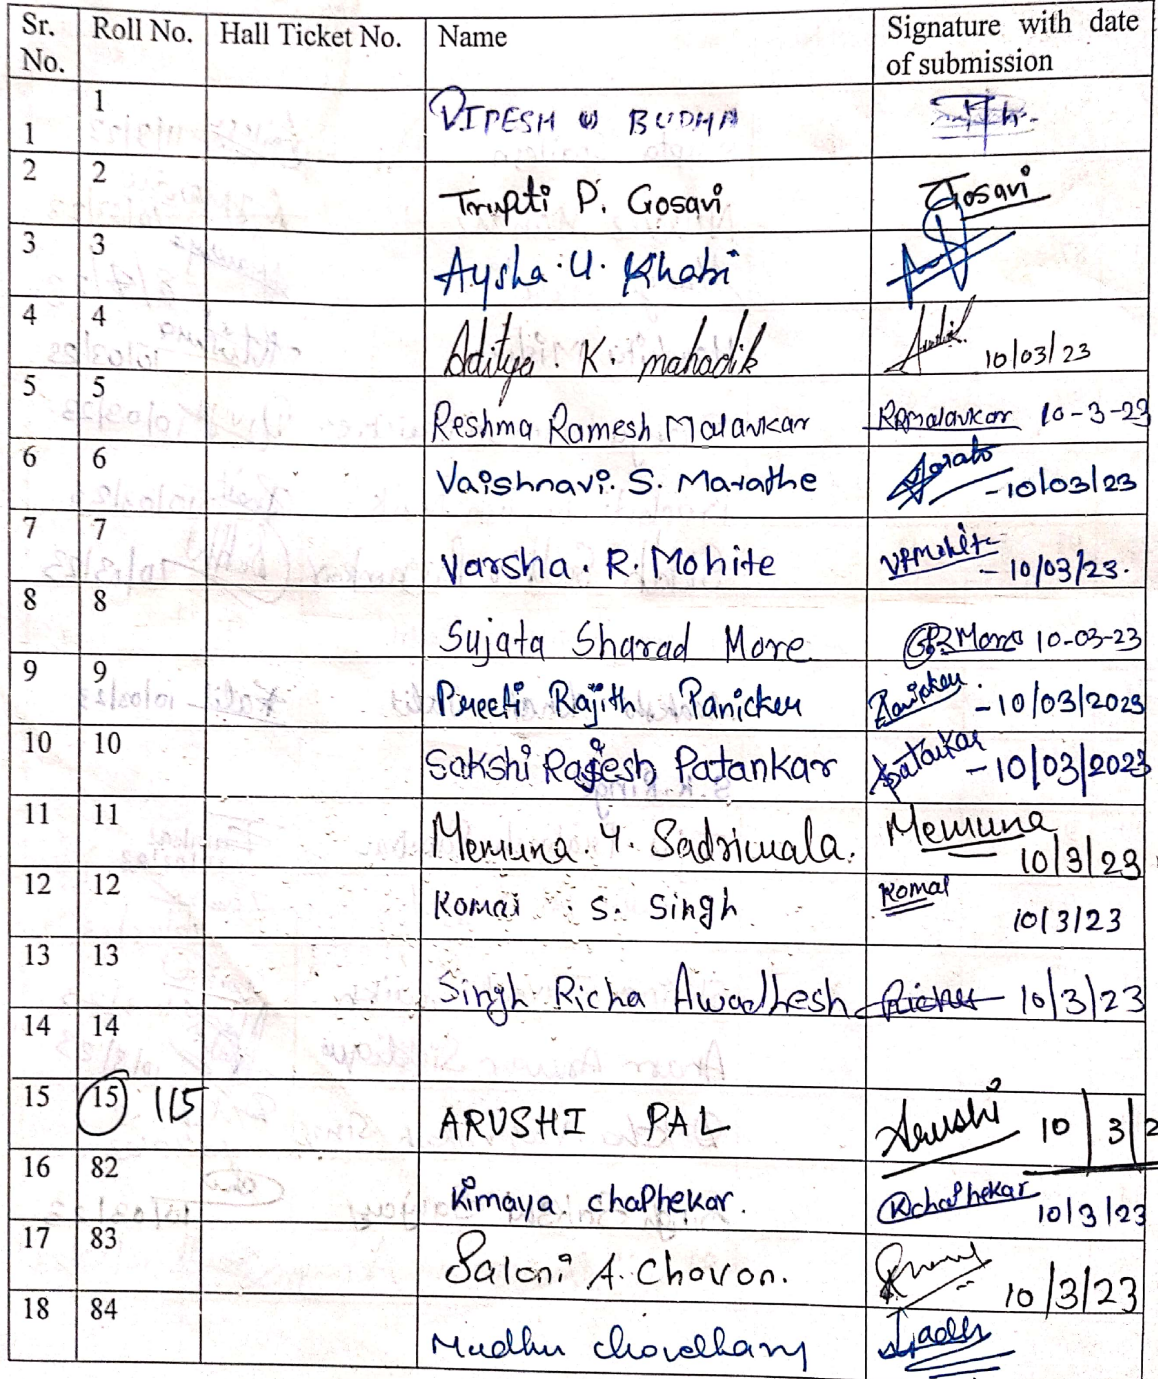 Sr. No. Roll No. Hall Ticket No. Name Signature with date of submission
1 1 DIPESH BUDHA
2 2 Trupti P. Gosavi Gosavi
3 3 Aysha . U . Khabi
4 4 Aditya . K . mahadik 10/03/23
5 5 Reshma Ramesh Malavkar RRMalavkar 10-3-23
6 6 Vaishnavi. S. Marathe -10/03/23
7 7 Varsha . R. Mohite VRMohite - 10/03/23.
8 8 Sujata Sharad More More 10-03-23
9 9 Preeti Rajith Panicker Panicker - 10/03/2023
10 10 Sakshi Rajesh Patankar Spatankar - 10/03/2023
11 11 Memuna . Y . Sadriwala . Memuna 10/3/23
12 12 Komal S. Singh Komal 10/3/23
13 13 Singh Richa Awadhesh Richa 10/3/23
14 14
15 15 115 ARUSHI PAL Arushi 10/3/2
16 82 Kimaya chaphekar. Kchaphekar 10/3/23
17 83 Saloni A. Chavan. 10/3/23
18 84 Madhu choudhary